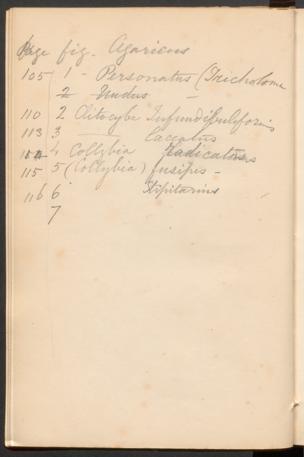 Page fig. Agaricus
105 1 - Personatus (Tricholoma
2 Nudus —
110 2 Clitocybe Infundibuliformis
113 3 —— Laccatus
114 4 Collybia Radicatus
115 5 (Collybia) fusipes -
116 6 Stipitarius
7